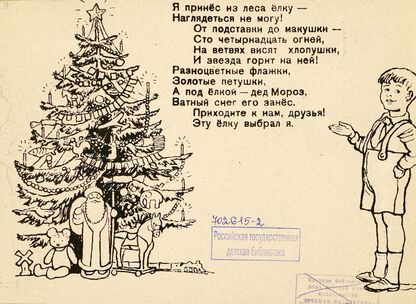 Я принёс из леса ёлку —
Наглядеться не могу!
От подставки до макушки —
Сто четырнадцать огней,
На ветвях висят хлопушки,
И звезда горит на ней!
Разноцветные флажки,
Золотые петушки,
А под ёлкой — дед Мороз,
Ватный снег его занёс.
Приходите к нам, друзья!
Эту ёлку выбрал я.
702615-2
Российская государственная
детская библиотека